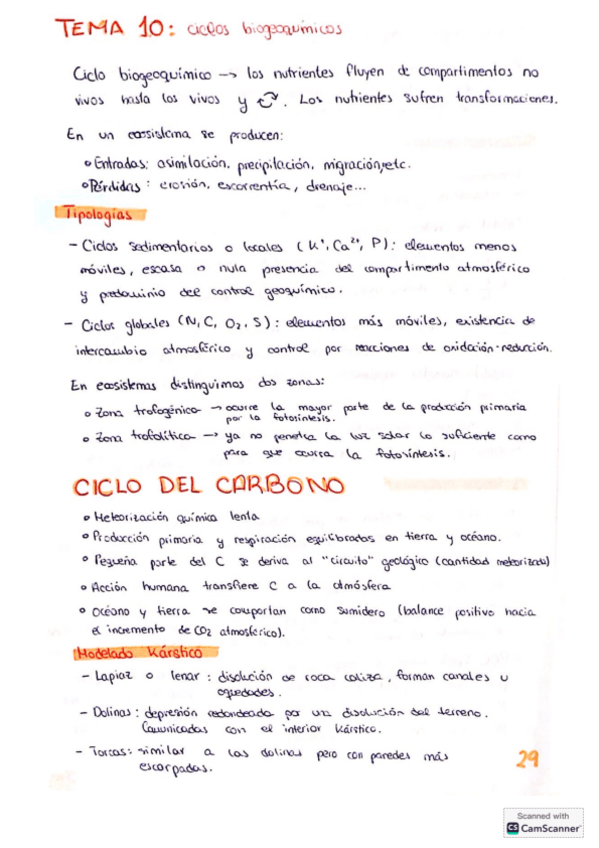 TEMA 10: ciclos biogeoquímicos
Ciclo biogeoquímico → los nutrientes fluyen de compartimentos no
vivos hasta los vivos y . Los nutrientes sufren transformaciones.
En un ecosistema se producen:
• Entradas: asimilación, precipilación, migración, etc.
• Pérdidas: erosión, escorrentía, drenaje...
Tipologías
- Ciclos sedimentarios o locales (K⁺, Ca²⁺, P): elementos menos
móviles, escasa o nula presencia del compartimento atmosférico
y predominio del control geoquímico.
- Ciclos globales (N, C, O₂, S): elementos más móviles, existencia de
intercambio atmosférico y control por reacciones de oxidación-reducción.
En ecosistemas distinguimos dos zonas:
• Zona trofogénico → ocurre la mayor parte de la producción primaria
por la fotosíntesis.
• Zona trofolítica → ya no penetra la luz solar lo suficiente como
para que ocurra la fotosíntesis.
CICLO DEL CARBONO
• Meteorización química lenta
• Producción primaria y respiración equilibrados en tierra y océano.
• Pequeña parte del C se deriva al "circuito" geológico (cantidad meteorizada)
• Acción humana transfiere C a la atmósfera
• Océano y tierra se comportan como sumidero (balance positivo hacia
el incremento de CO₂ atmosférico).
Modelado Kárstico
- Lapiaz o lenar: disolución de roca caliza, forman canales u
oquedades.
- Dolinas: depresión redondeada por una disolución del terreno.
Comunicadas con el interior kárstico.
- Torcas: similar a las dolinas pero con paredes más
escarpadas.
29
Scanned with
CS CamScanner